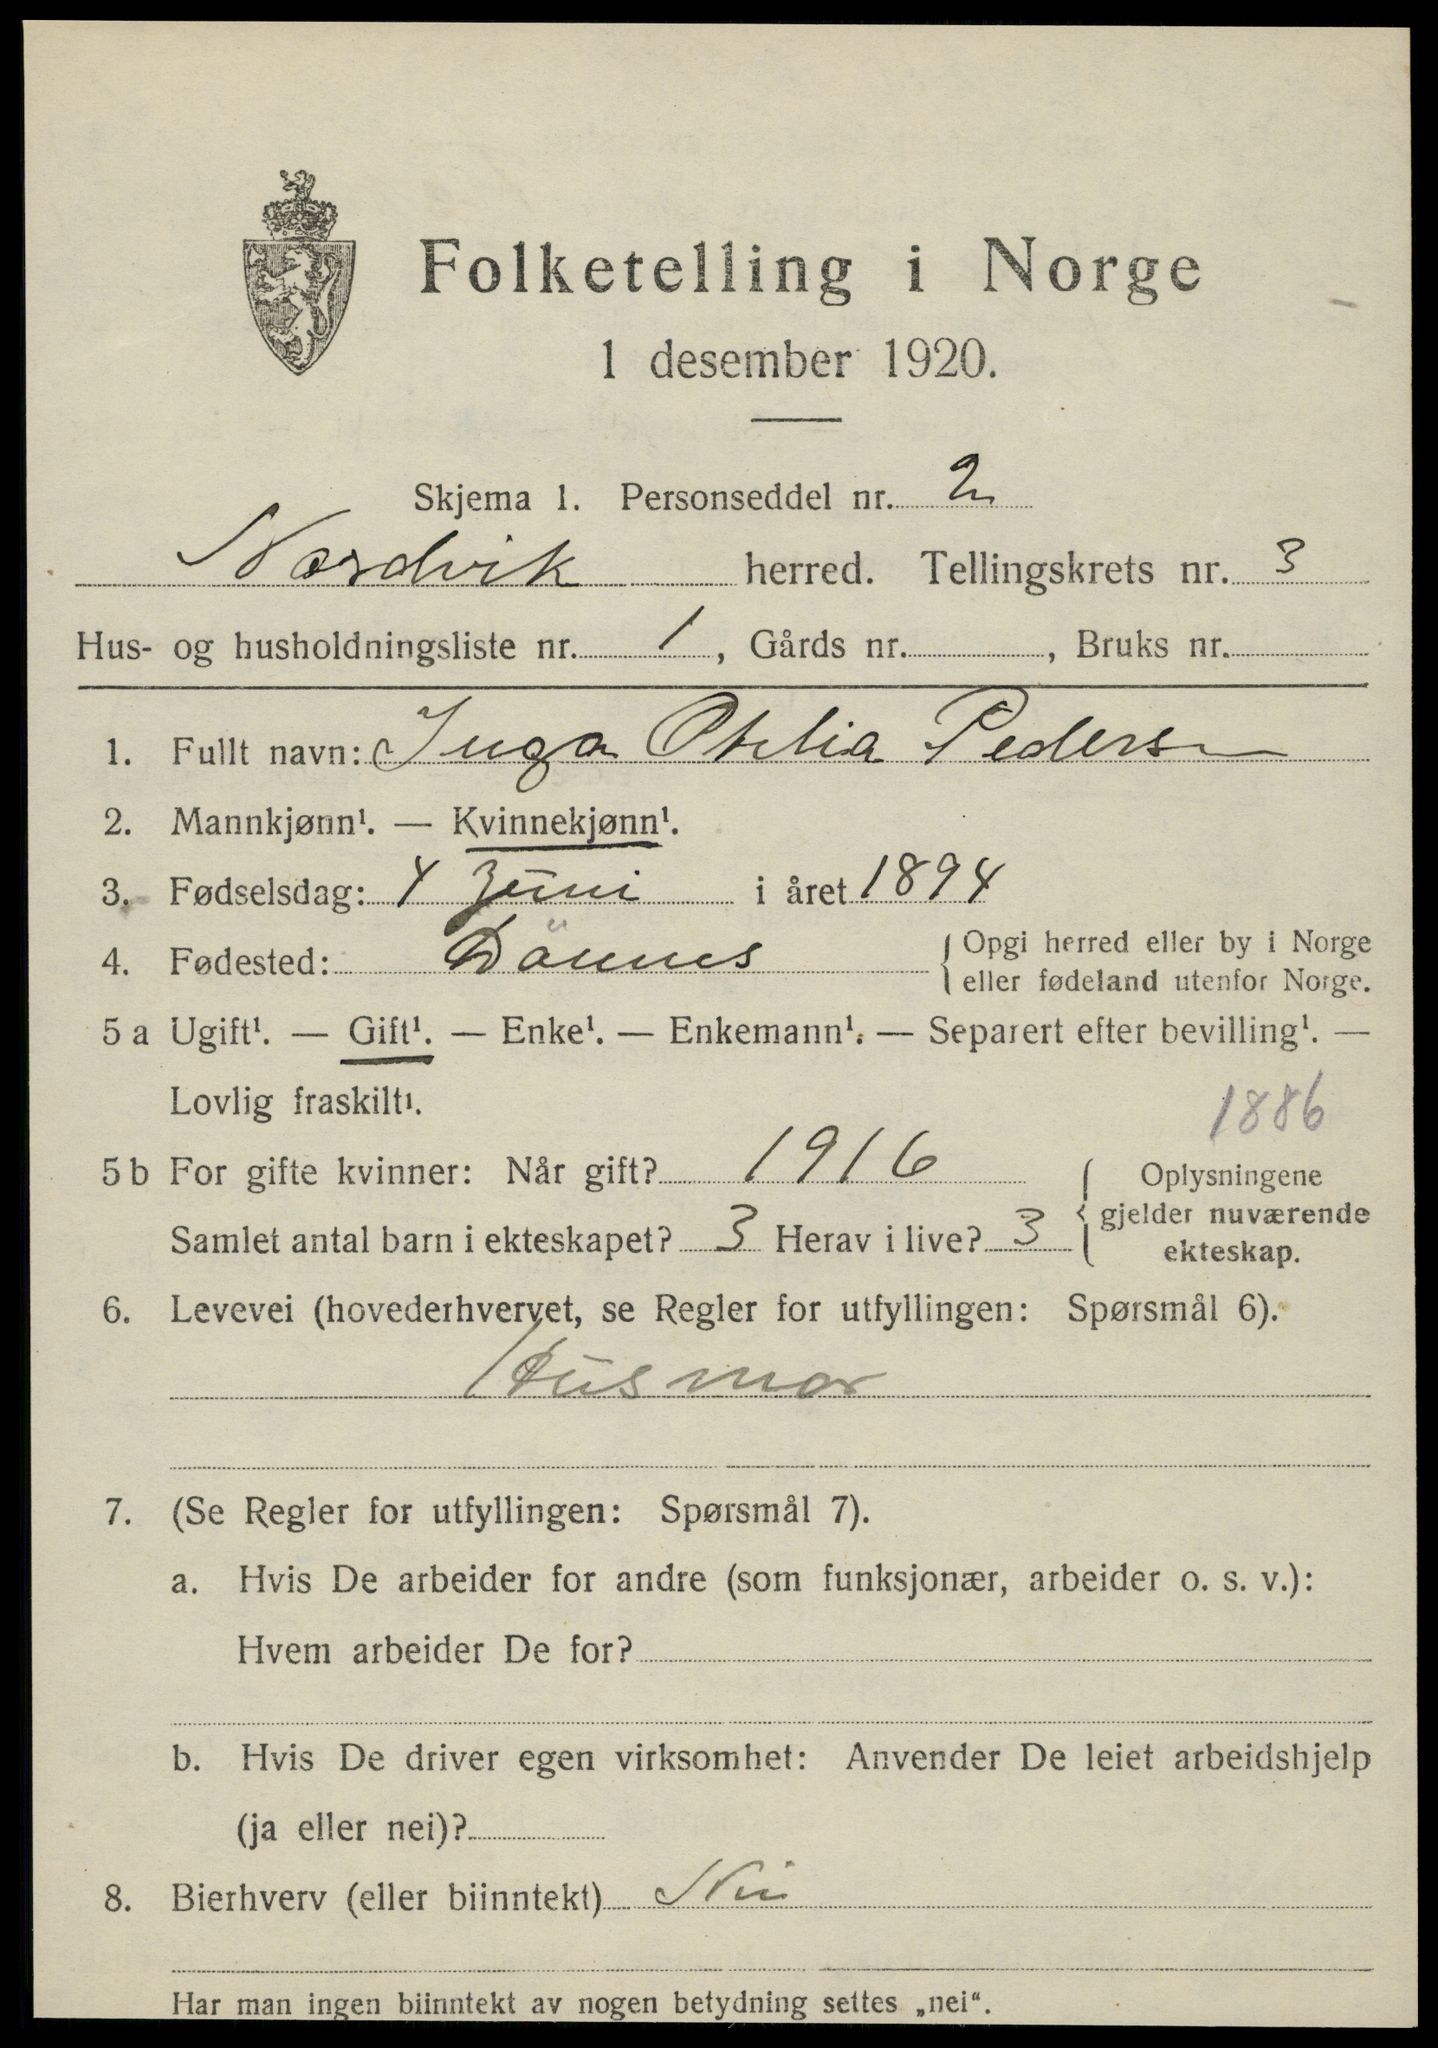 Folketelling i Norge
1 desember 1920.
Skjema 1. Personseddel nr. 2
Nordvik herred. Tellingskrets nr. 3
Hus- og husholdningsliste nr. 1, Gårds nr. , Bruks nr.
1. Fullt navn: Inga Otelia Pedersen
2. Mannkjønn¹. — Kvinnekjønn¹.
3. Fødselsdag: 4 Juni i året 1894
4. Fødested: Dönnes { Opgi herred eller by i Norge
eller fødeland utenfor Norge.
5 a Ugift¹. — Gift¹. — Enke¹. — Enkemann¹. — Separert efter bevilling¹. —
Lovlig fraskilt¹.
1886
5 b For gifte kvinner: Når gift? 1916
Samlet antal barn i ekteskapet? 3 Herav i live? 3
{ Oplysningene
gjelder nuværende
ekteskap.
6. Levevei (hovederhvervet, se Regler for utfyllingen: Spørsmål 6).
Husmor
7. (Se Regler for utfyllingen: Spørsmål 7).
a. Hvis De arbeider for andre (som funksjonær, arbeider o. s. v.):
Hvem arbeider De for?
b. Hvis De driver egen virksomhet: Anvender De leiet arbeidshjelp
(ja eller nei)?
8. Bierhverv (eller biinntekt) Nei
Har man ingen biinntekt av nogen betydning settes „nei“.